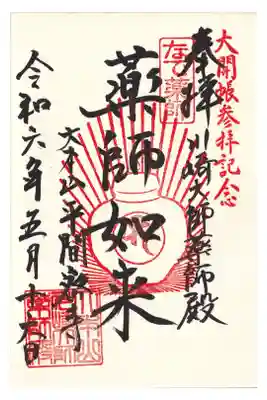 大開帳参拝記念
奉拝
川崎大師薬師殿
なで薬師
薬師如来
大本山平間寺
令和六年五月十六日